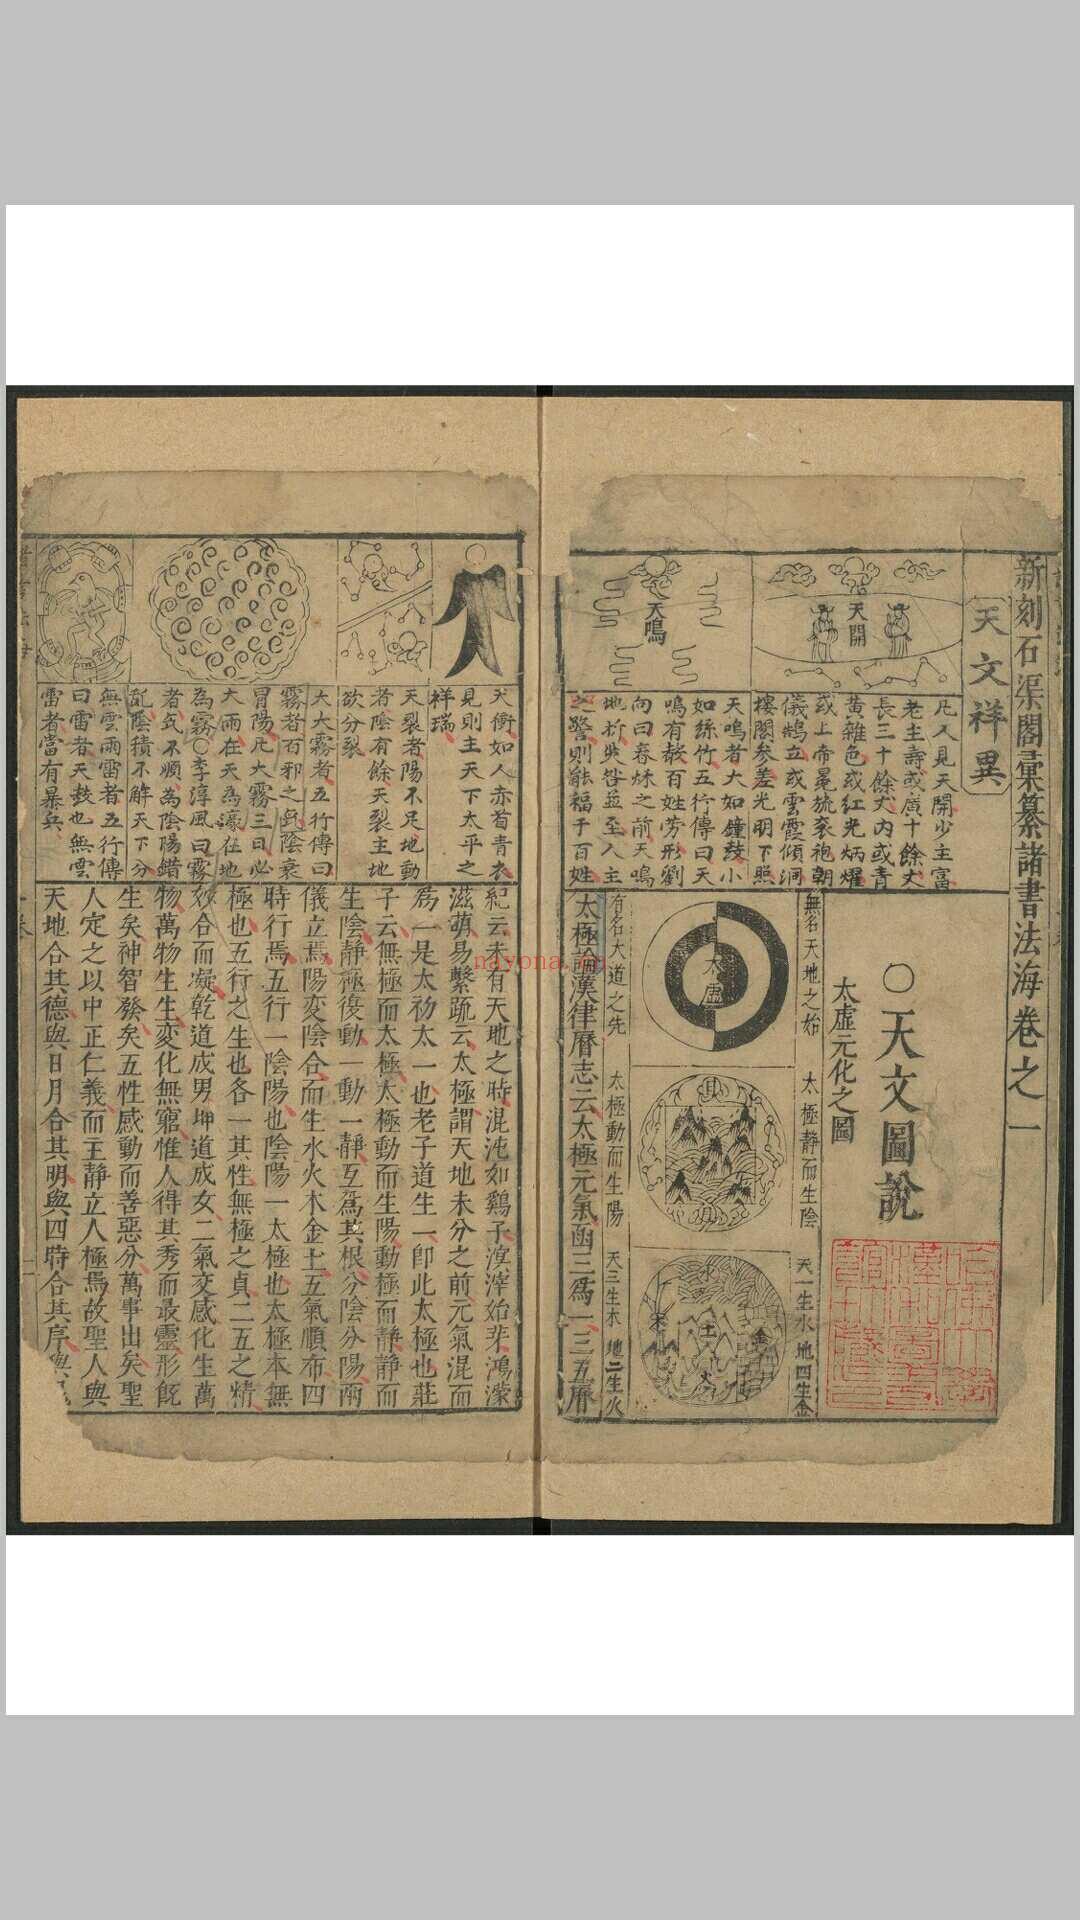 新刻石渠閣彙纂諸書法海卷之一
天文祥異
天開
天鳴
凡人見天開少主富
老主壽或廣十餘丈
長三十餘丈內或青
黃雜色或紅光炳燿
或上帝冕旒袞袍朝
儀鵠立或雲霞傾洞
樓閣參差光明下照
天鳴者大如鐘鼓小
如絲竹五行傳曰天
鳴有聲百姓勞形劉
向曰春秋之前天鳴
地折災咎並至人主
之警則能福于百姓
○天文圖說
太虛元化之圖
無名天地之始
太極靜而生陰
天一生水
地四生金
太虛
水
木
土
金
火
有名大道之先
太極動而生陽
天三生木
地二生火
太極論漢律曆志云太極元氣函三爲一三五曆
天衡如人赤首青衣
見則主天下太平之
祥瑞
天裂者陽不足地動
者陰有餘天裂主地
欲分裂
天大霧者五行傳曰
霧者百邪之氣陰衰
冒陽凡大霧三日必
大雨在天為濛在地
為霧○李淳風曰霧
者氣不順為陰陽錯
亂陰積不解天下分
無雲雨雷者五行傳
曰雷者天鼓也無雲
雷者當有暴兵
紀云未有天地之時混沌如鷄子溟涬始非鴻濛
滋萌易繫疏云太極謂天地未分之前元氣混而
爲一是太初太一也老子道生一卽此太極也莊
子云無極而太極太極動而生陽動極而靜靜而
生陰靜極復動一動一靜互爲其根分陰分陽兩
儀立焉陽變陰合而生水火木金土五氣順布四
時行焉五行一陰陽也陰陽一太極也太極本無
極也五行之生也各一其性無極之貞二五之精
妙合而凝乾道成男坤道成女二氣交感化生萬
物萬物生生變化無窮惟人得其秀而最靈形旣
生矣神智發矣五性感動而善惡分萬事出矣聖
人定之以中正仁義而主靜立人極焉故聖人與
天地合其德與日月合其明與四時合其序與